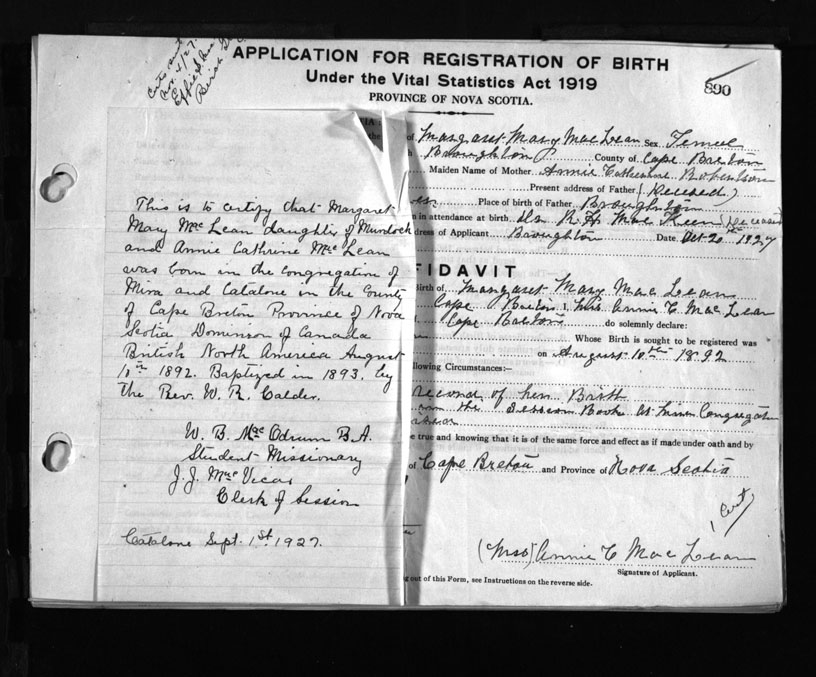 APPLICATION FOR REGISTRATION OF BIRTH
Under the Vital Statistics Act 1919
PROVINCE OF NOVA SCOTIA.
890
This is to certify that Margaret
Mary Mac Lean daughter of Murdoch
and Annie Cathrine Mac Lean
was born in the congregation of
Mira and Catalone in the County
of Cape Breton Province of Nova
Scotia Dominion of Canada
British North America August
10th 1892. Baptized in 1893. by
the Rev. W. R. Calder.
W. B. Mac Odrum B.A.
Student Missionary
J. J. Mac Vicar
Clerk of Session
Catalone Sept. 1st. 1927.
of Margaret Mary Mac Lean Sex. Female
Broughton County of Cape Breton
Maiden Name of Mother Annie Catherine Robertson
Present address of Father (Deceased)
Place of birth of Father Broughton
in attendance at birth Dr. Mac Keen (Deceased)
dress of Applicant Broughton Date Oct 20th 1927
FIDAVIT
Birth of Margaret Mary Mac Lean
Cape Breton I, Mrs Annie C Mac Lean
Cape Breton do solemnly declare:
Whose Birth is sought to be registered was
on August 10th 1892
llowing Circumstances:—
record of her Birth
the Session Book Congregation
e true and knowing that it is of the same force and effect as if made under oath and by
of Cape Breton and Province of Nova Scotia
1 Cert
(Mrs) Annie C Mac Lean
Signature of Applicant.
g out of this Form, see Instructions on the reverse side.